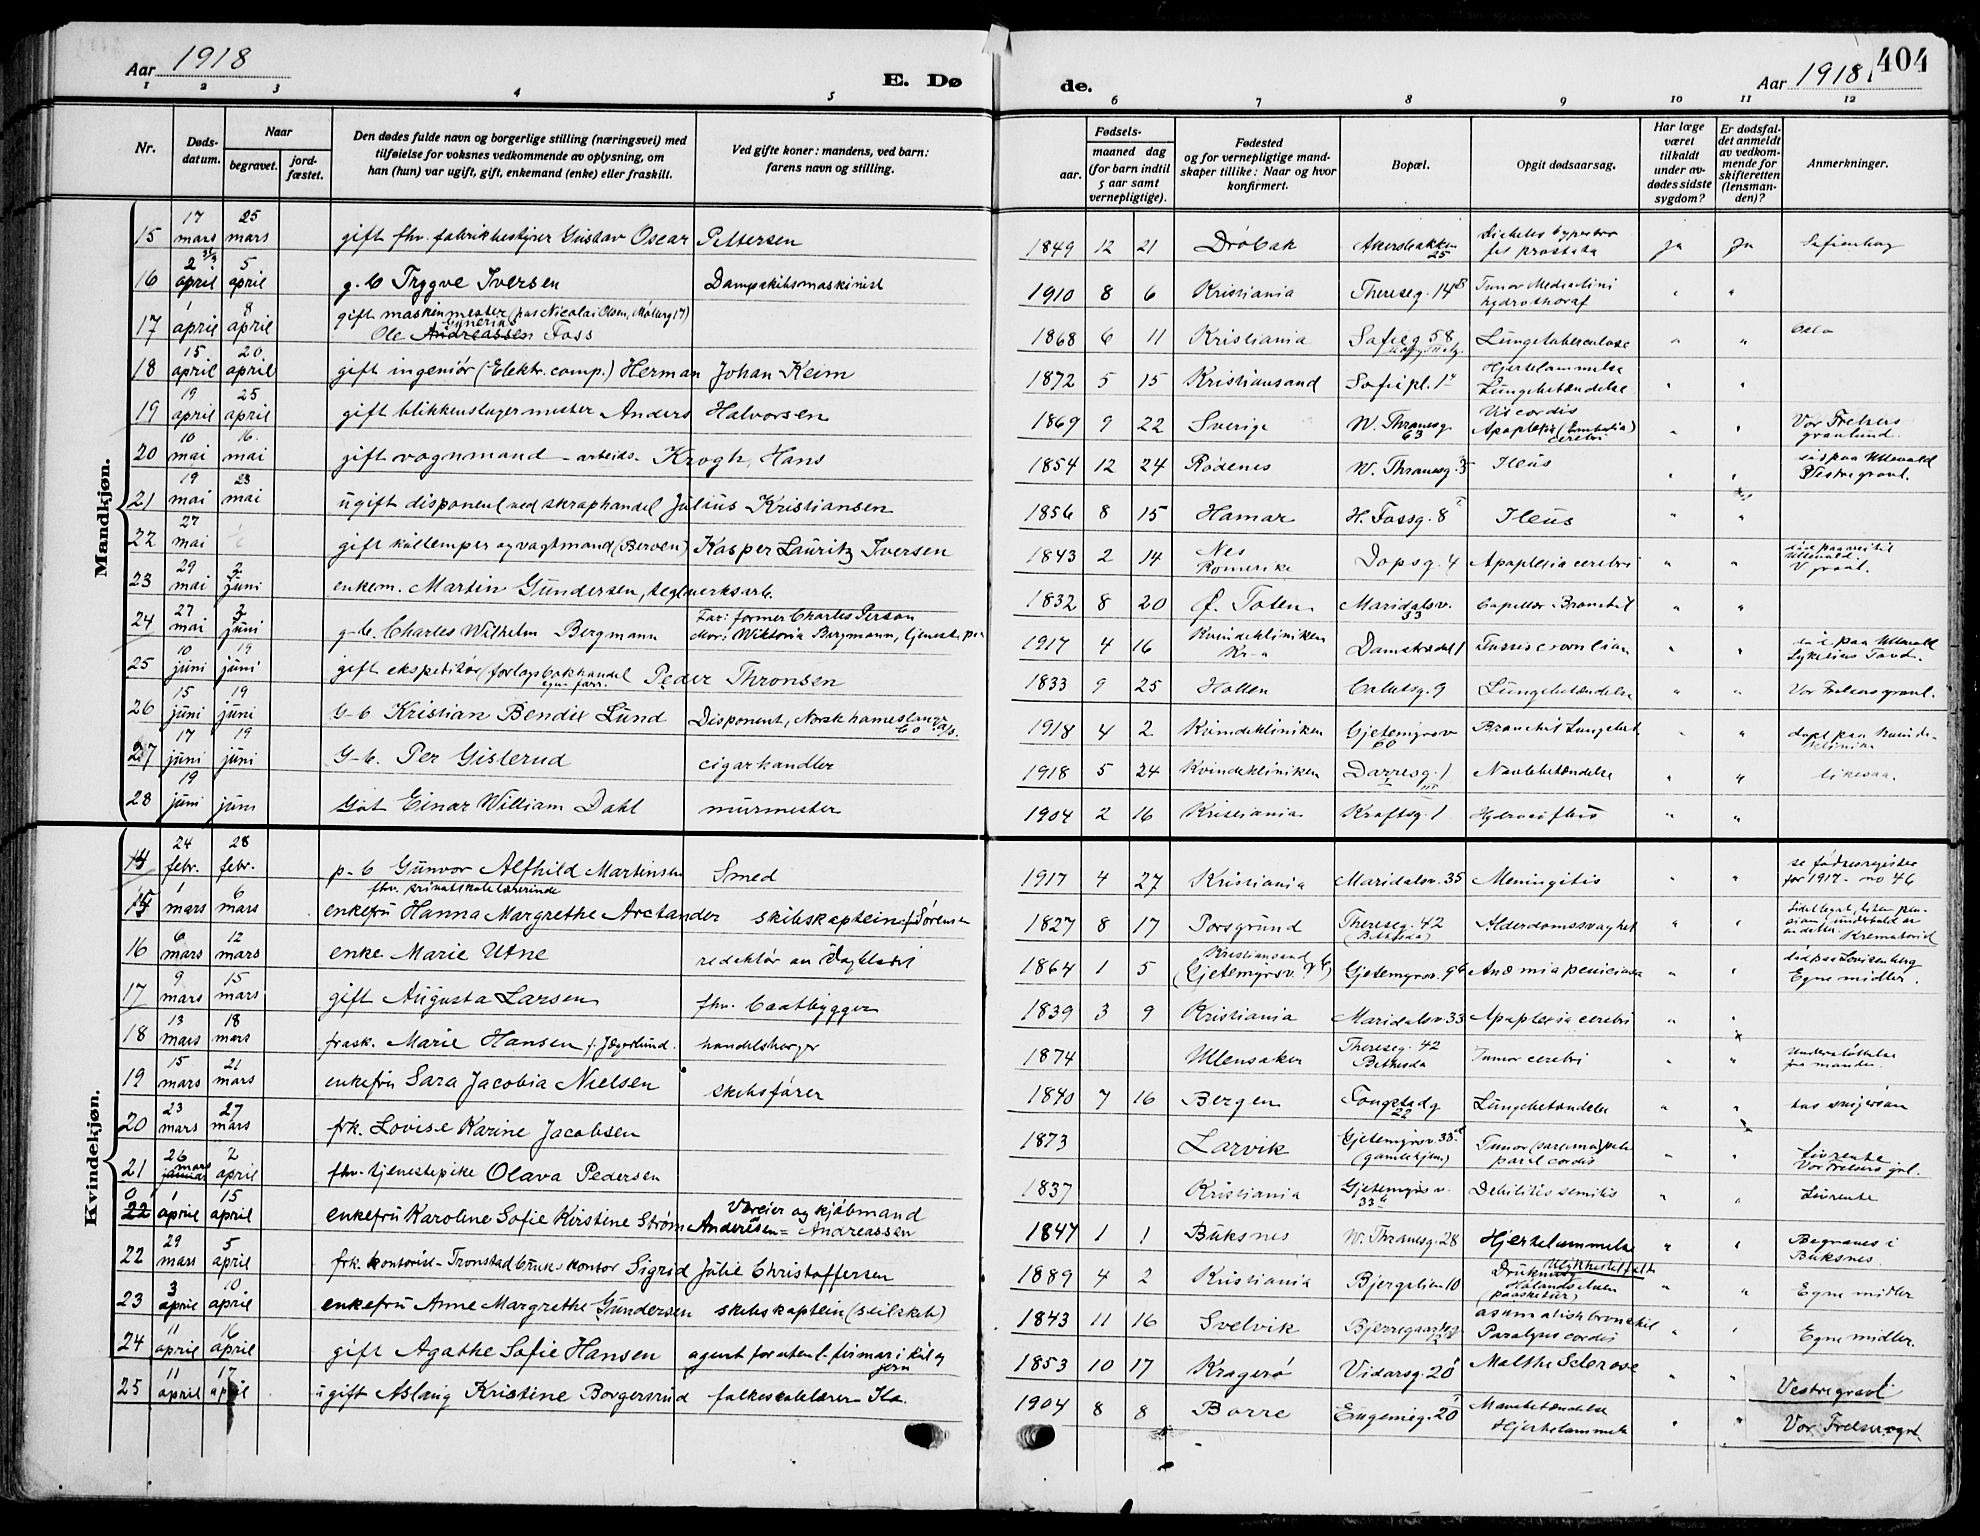 Aar 1918
E. Dø
de.
Aar 1918
404
1 2 3 4 5 6 7 8 9 10 11 12
Nr.
Døds-
datum.
Naar
begravet.
jord-
fæstet.
Den dødes fulde navn og borgerlige stilling (næringsvei) med
tilføielse for voksnes vedkommende av oplysning, om
han (hun) var ugift, gift, enkemand (enke) eller fraskilt.
Ved gifte koner: mandens, ved barn:
farens navn og stilling.
Fødsels-
aar.
maaned dag
(for barn indtil
5 aar samt
vernepligtige).
Fødested
og for vernepligtige mand-
skaper tillike: Naar og hvor
konfirmert.
Bopæl.
Opgit dødsaarsag.
Har læge
været
tilkaldt
under av-
dødes sidste
sygdom?
Er dødsfal-
det anmeldt
av vedkom-
mende for
skifteretten
(lensman-
den)?
Anmerkninger.
Mandkjøn.
15 17 mars 25 mars gift fhv. fabrikbestyrer Gustav Oscar Pettersen 1849 12 21 Drøbak Akersbakken 25 ja ja
16 2 april 5 april g. b Trygve Iversen Dampskibsmaskinist 1910 8 6 Kristiania Thereseg. 14 " "
17 1 april 8 april gift maskinmester (hos Nicolai Olsen,
Ole Andreassen Foss 1868 6 11 Kristiania Sofieg 58 Lungetuberculose " " Oslo
18 15 april 20 april gift ingeniør (Elektr. comp.) Herman Johan Keim 1872 5 15 Kristiansand Sofiepl. 1 Hjertelammelse
Lungebetændelse " "
19 19 april 25 april gift blikkenslagermester Anders Halvorsen 1869 9 22 Sverige W. Thranesg. 63 Vit cordis
Apoplexia (Embolia) cerebri " " Vor Frelsers
gravlund.
20 10 mai 16 mai gift vognmand - arbeids. Krogh, Hans 1854 12 24 Rødenes W. Thranesg. 35 Ileus " " død paa Ullevaal
Vestre gravl.
21 19 mai 23 mai ugift disponent ved skraphandel Julius Kristiansen 1856 8 15 Hamar H. Fossg. 8 Ileus " "
22 27 mai gift kullemper og vagtmand (Berven) Kasper Lauritz Iversen 1843 2 14 Nes
Romerike Dopsg. 4 Apoplexia cerebri " "
23 29 mai 2 juni enkem. Martin Gundersen, teglverksarb. 1832 8 20 Ø. Toten Maridalsv. 33 Capillær Bronchit " "
24 27 mai 2 juni g-b. Charles Wilhelm Bergmann Far: former Charles Person
Mor: Wiktoria Bergmann, tjenestepi 1917 4 16 Kvindekliniken
Kr-a Damstrædet 1 " " død paa Ullevaal
25 10 juni 19 juni gift ekspeditør (forlagsbokhandel
egne forr. Peder Thronsen 1833 9 25 Holten Calmeyersg. 9 Lungebetændelse " " Vor Frelsers gravl.
26 15 juni 19 juni G-b Kristian Bendix Lund Disponent, Norsk 1918 4 2 Kvindekliniken Gjetemyrsv. 60 Bronchit Lungebet " " døpt paa Kvinde-
klinika
27 17 juni 19 juni G-b. Per Gislerud cigarhandler 1918 5 24 Kvindekliniken Darresg. 1 Navlebetændelse " " likesaa.
28 19 juni juni Gut Einar William Dahl murmester 1904 2 16 Kristiania Kraftsg. 1 " "
Kvindekjøn.
14 24 febr. 28 febr. p-b Gunvor Alfhild Martinsen Smed 1917 4 27 Kristiania Maridalsv. 35 Meningitis " " se fødselsregister
for 1917 - no 46
15 1 mars 6 mars fhv. privatskolelærerinde
enkefru Hanna Margrethe Archander skibskaptein f. Sørensen 1827 8 17 Porsgrund Thereseg. 42
(Bethesda) Alderdomssvaghet " " Krematoriet
16 6 mars 12 mars enke Marie Utne redaktør av Dagbladet 1864 1 5 Kristiansand
(Gjetemyrsv. 9b) Gjetemyrsv. 96 Anæmia perniciosa " " død paa Lovisenberg
Egne midler.
17 9 mars 15 mars gift Augusta Larsen fhv. baatbygger 1839 3 9 Kristiania Maridalsv. 33 Apoplexia cerebri " "
18 13 mars 18 mars frask. Marie Hansen, f. Jægerlund. handelsborger 1874 Ullensaker Thereseg. 42
Bethesda Tumor cerebri " " Understøttelse
fra manden.
19 15 mars 21 mars enkefru Sara Jacobia Nielsen skibsfører 1840 7 16 Bergen Tougstadg 22 Lungebetændelse " " hos svigersøn
20 23 mars 27 mars frk. Lovise Karine Jacobsen 1873 Larvik Gjetemyrsv. 33
(gamlehjem) " " Livrente
Vor Frelsers grl.
21 26 mars januar 2 april fhv. tjenestepike Olava Pedersen 1837 Kristiania Gjetemyrs v. 33 Debilitis senilis " " Livrente
22 1 april 15 april enkefru Karoline Sofie Kirstine Strøm Væreier og kjøbmand
Andersen = Andreassen 1847 1 1 Buksnes W. Thranesg. 28 Hjertelammelse " " Begraves i
Buksnes.
22 29 mars 5 april frk. kontorist - Tronstad bruk kontor Sigrid Julie Christoffersen 1889 4 2 Kristiania Bjergslien 10 Druknet Ulykkestilfelt
(paaskelur) " " Egne midler
23 3 april 10 april enkefru Anne Margrethe Gundersen skibskaptein (seilskib) 1843 11 16 Svelvik Bjerregaardsg Paralysis cordis " " Egne midler.
24 11 april 16 april gift Agathe Sofie Hansen agent for utenl. firmar i kul og
jern 1853 10 17 Kragerø Vidarsg. 20 " " Vestre gravl
25 11 april 17 april ugift Aslaug Kristine Borgersrud folkeskolelærer Ila. 1904 8 8 Borre Eugenieg. 20 Mavebetændelse
Hjertelammelse " " Vor Frelsers grl